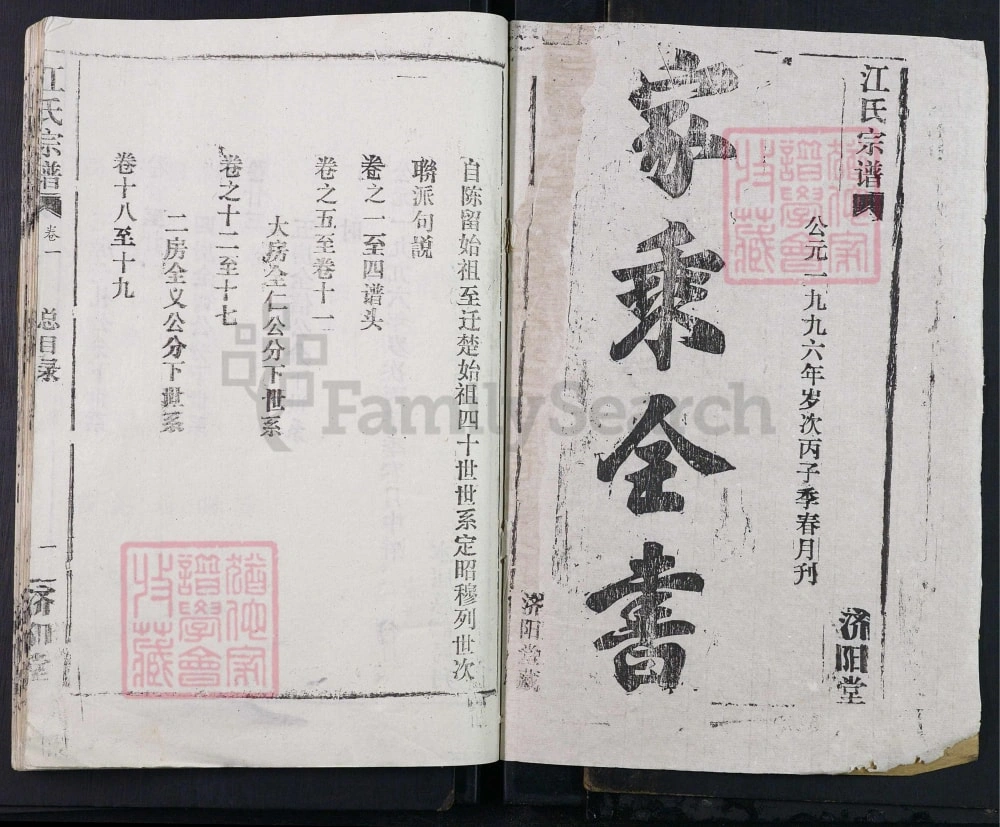 江氏宗谱
公元一九九六年岁次丙子季春月刊
济阳堂
家乘全书
济阳堂藏
自陈留始祖至迁楚始祖四十世世系定昭穆列世次
聯派句説
卷之一至四谱头
卷之五至卷十一
大房全仁公分下世系
卷之十二至十七
二房全义公分下世系
卷十八至十九
江氏宗谱
卷一
总目录
一
济阳堂
FamilySearch
譜學會
收藏
譜學會
收藏